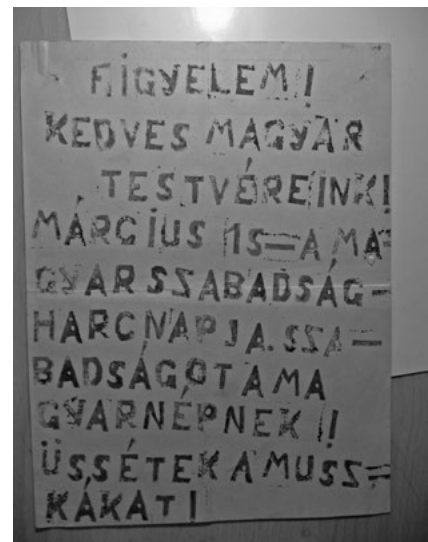 FIGYELEM!
KEDVES MAGYAR
TESTVÉREINK!
MÁRCIUS 15=A MA=
GYARSZABADSÁG-
HARCNAPJA. SZA=
BADSÁGOTAMA
GYARNÉPNEK!!
ÜSSÉTEK A MUSZ=
KÁKAT!